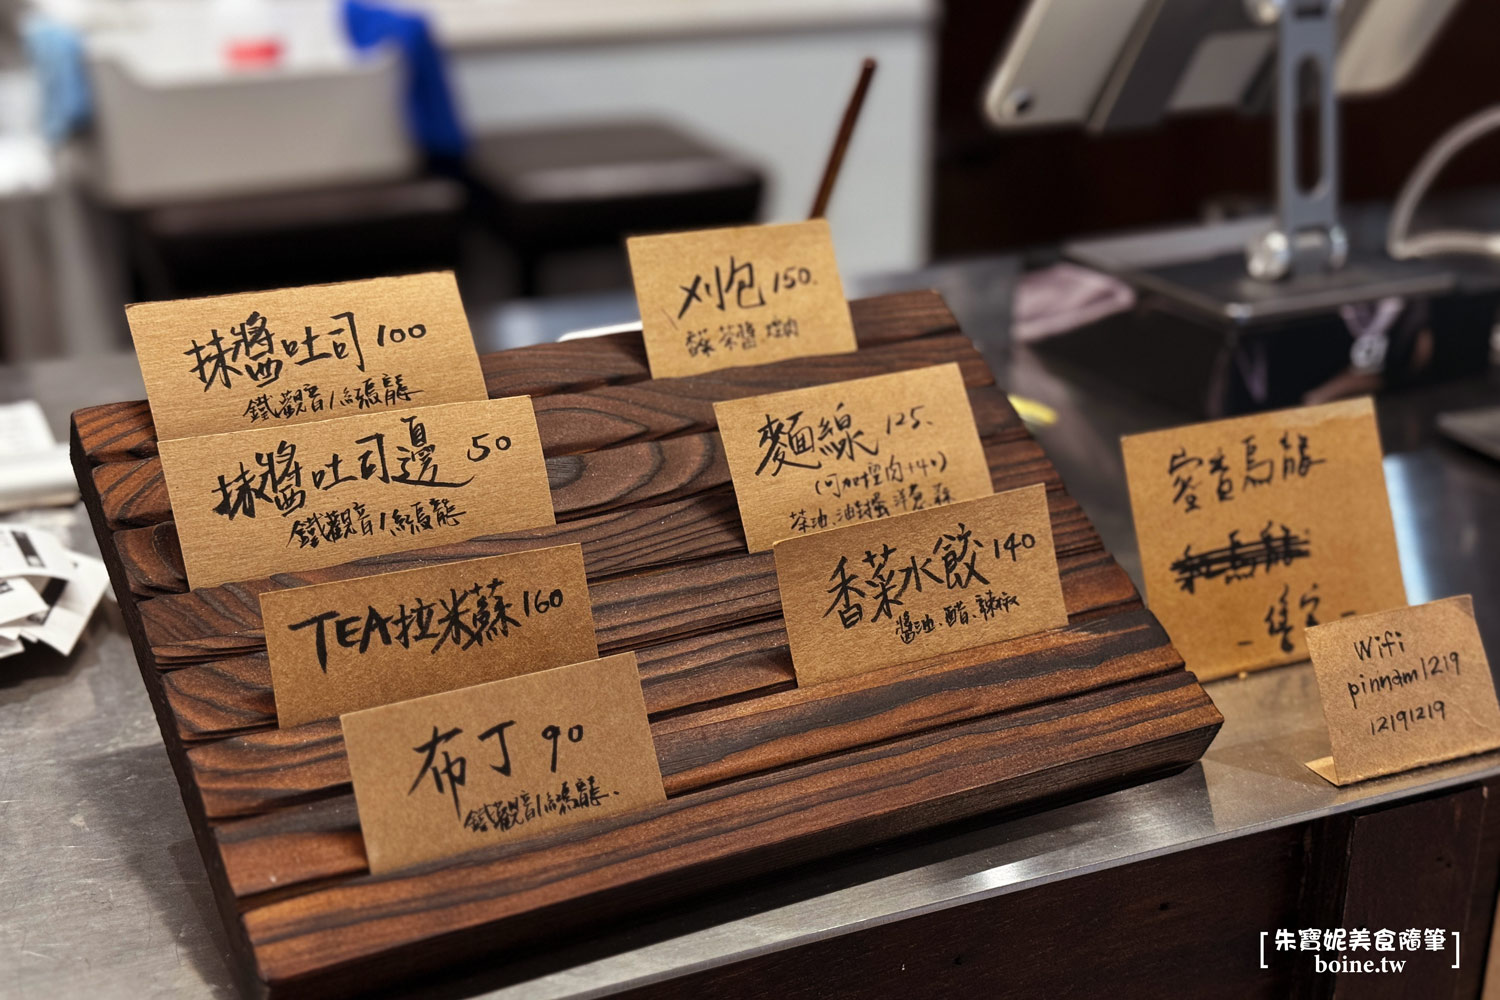 抹醬吐司 100
鐵觀音/紅烏龍
抹醬吐司邊 50
鐵觀音/紅烏龍
TEA拉米蘇 160
布丁 90
鐵觀音/紅烏龍.
刈包 150.
麵線 125.
(可加控肉 140)
香菜水餃 140
醬油、醋、辣椒
蜜香烏龍
Wifi
pinnam1219
12191219
[朱寶妮美食隨筆]
boine.tw